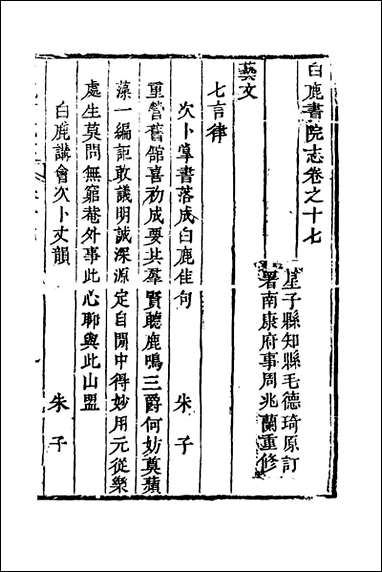 白鹿書院志卷之十七
星子縣知縣毛德琦原訂
署南康府事周兆蘭重修
藝文
七言律
次卜掌書落成白鹿佳句　朱子
重營舊館喜初成要共羣賢聽鹿鳴三爵何妨奠蘋
藻一編詎敢議明誠深源定自閒中得妙用元從樂
處生莫問無窮巷外事此心聊與此山盟
白鹿講會次卜丈韻　朱子